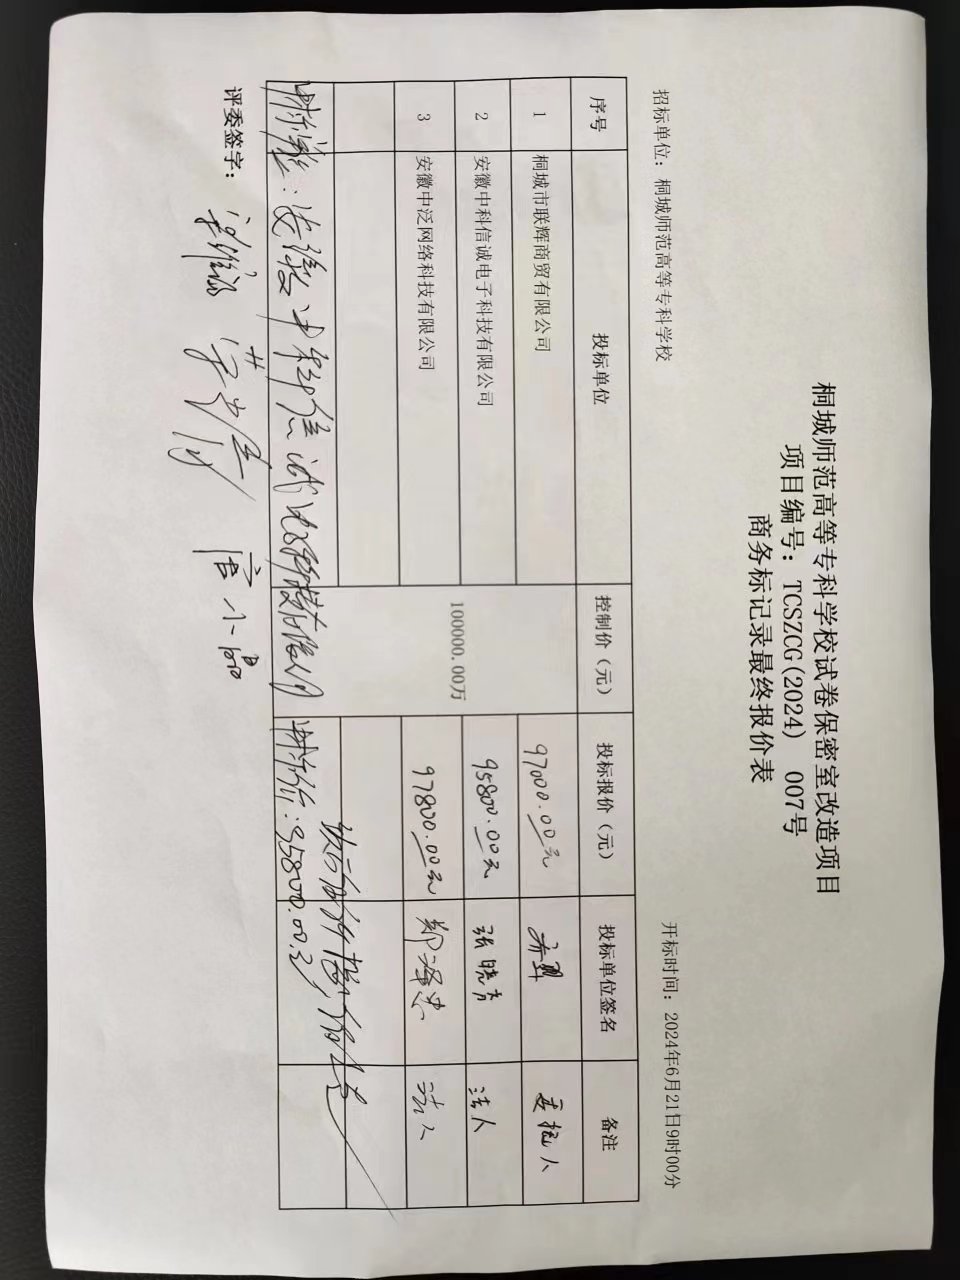 桐城师范高等专科学校试卷保密室改造项目
项目编号：TCSZCG(2024) 007号
商务标记录最终报价表
招标单位：桐城师范高等专科学校 开标时间：2024年6月21日9时00分
序号 投标单位 控制价（元） 投标报价（元） 投标单位签名 备注
1 桐城市联辉商贸有限公司 100000.00万 97000.00元 委托人
2 安徽中科信诚电子科技有限公司 95800.00元 张晓芳 法人
3 安徽中泛网络科技有限公司 97800.00元 郑泽忠 法人
安徽中科信诚电子科技有限公司 95800.00元
评委签字：